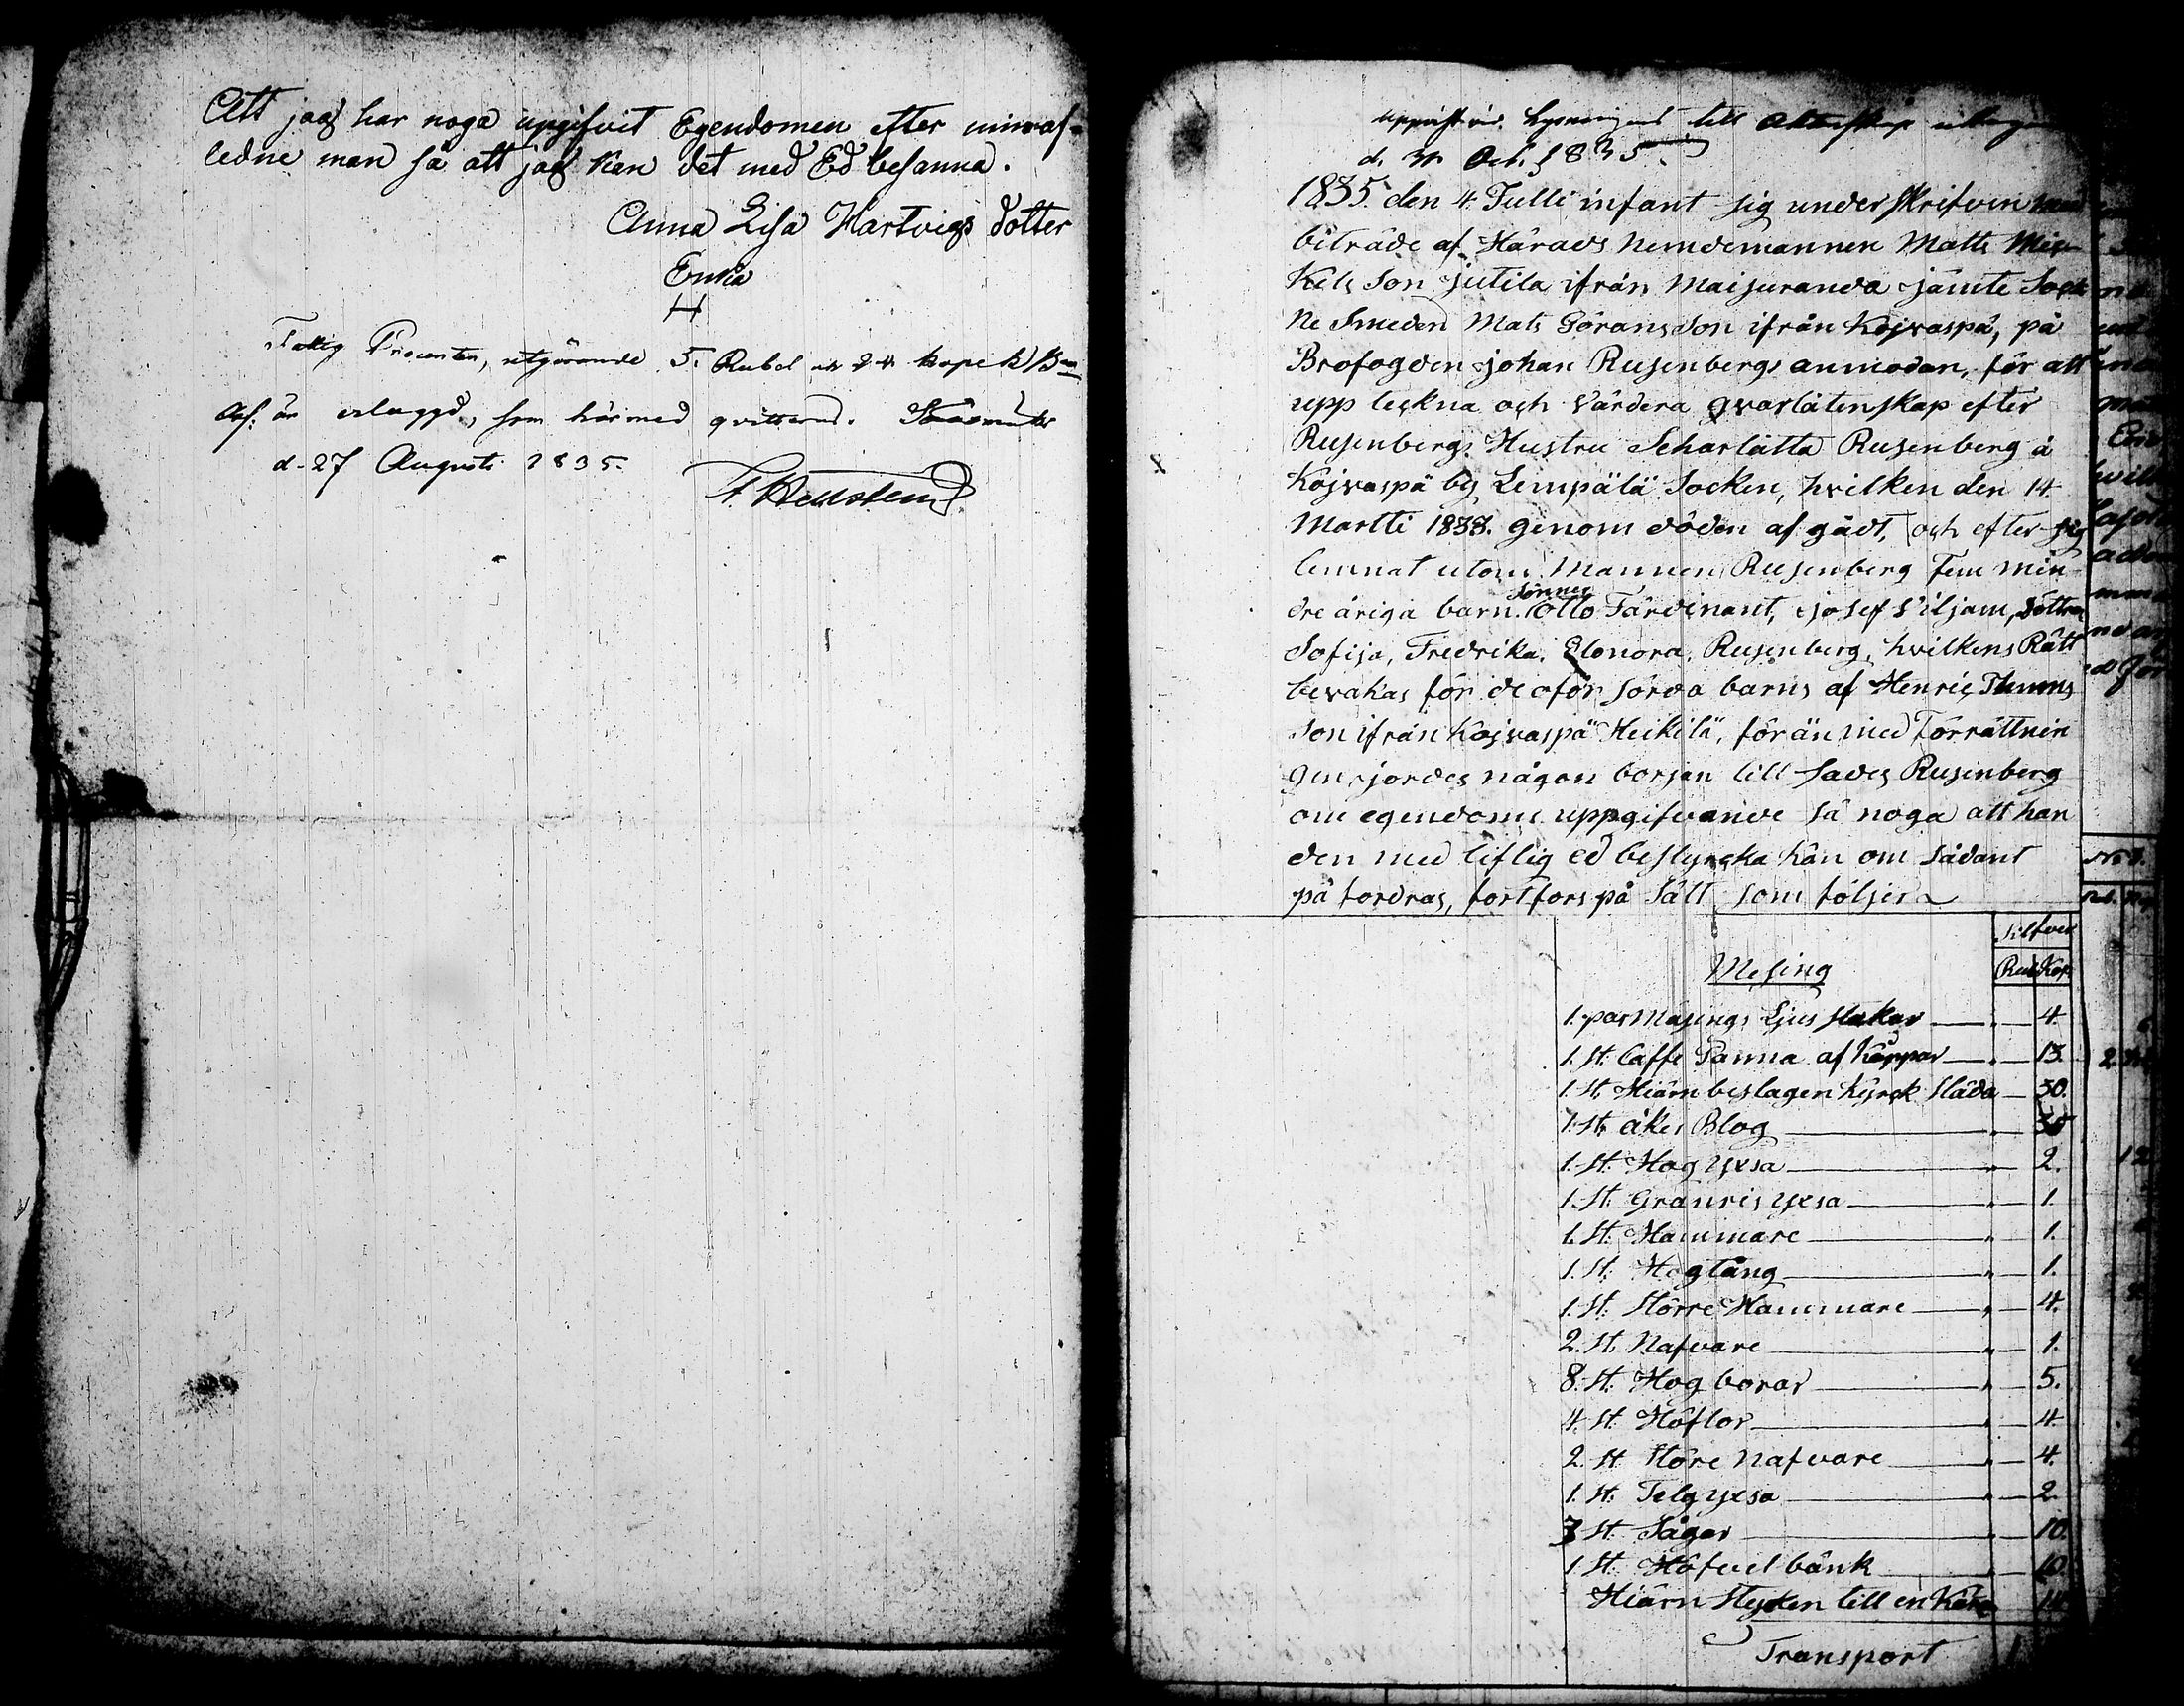 Att jag har noga upgifvit Egendomen efter minaf=
ledne man så att jag kan det med Ed besanna.
Anna Lisa Hartvigs dotter
Enka
H
Fattig Procenten, utgörande 5. Rubel 24 kopek B
Ass: är erlaggd, som härmed qvitteras.
d. 27 Augusti 1835.
F. Hellsten
uppvist vid Lysningens till Äktenskap
d. Oct. 1835.
1835 den 4 Julli infant sig underskrifven med
biträde af Härads Nemdemannen Matts Mic-
kels Son Jutila ifrån Maisuranda jämte Sock
ne Smeden Mats Görans Son ifrån Kojvaspä, på
Brofogden Johan Rusenbergs anmodan, för att
upp teckna och Värdera qvarlåtenskap efter
Rusenbergs Hustru Scharlåtta Rusenberg å
Kojvaspä by Lempälä Socken, hvilken den 14
Martti 1833. genom döden af gådt, och efter sig
lemnat utom Mannen Rusenberg Fem min
dre åriga barn. Sönner Otto Färdinant, Josef Viljam, Döttrar
Sofija, Fredrika, Elonora, Rusenberg, hvilkens Rätt
bevakas för de oför sörda barns af Henric Thomas
Son ifrån Kojvaspä Heikilä, för än med Förrättnin
gen jordes någon borjan till sades Rusenberg
om egendoms uppgifvande så noga att han
den med liflig ed bestyrcka kan om sådant
på fordras, fortfors på Sätt som följer
Silfver
Mesing Rub Kop
1. par Mäsings Ljus stakar " 4.
1. st. Caffe Panna af Koppar " 13.
1. st. Hiärn beslagen Kyrck Släda 30.
1. st. åker Blog " 35
1. st. Hog yxsa " 2.
1. st. Granris yxsa " 1.
1. st. Hammare " 1.
1. st. Hogtång " 1.
1. st. Större Hammare " 4.
2. st. Nafvare " 1.
8. st. Hog borar " 5.
4. st. Höflor " 4.
2 st. Störe Nafvare " 4.
1. st. Telg yxsa " 2.
3 st. Sågar " 10.
1 st. Höfvel bänk " 10
Hiärn Stycken till en Kära
Transport